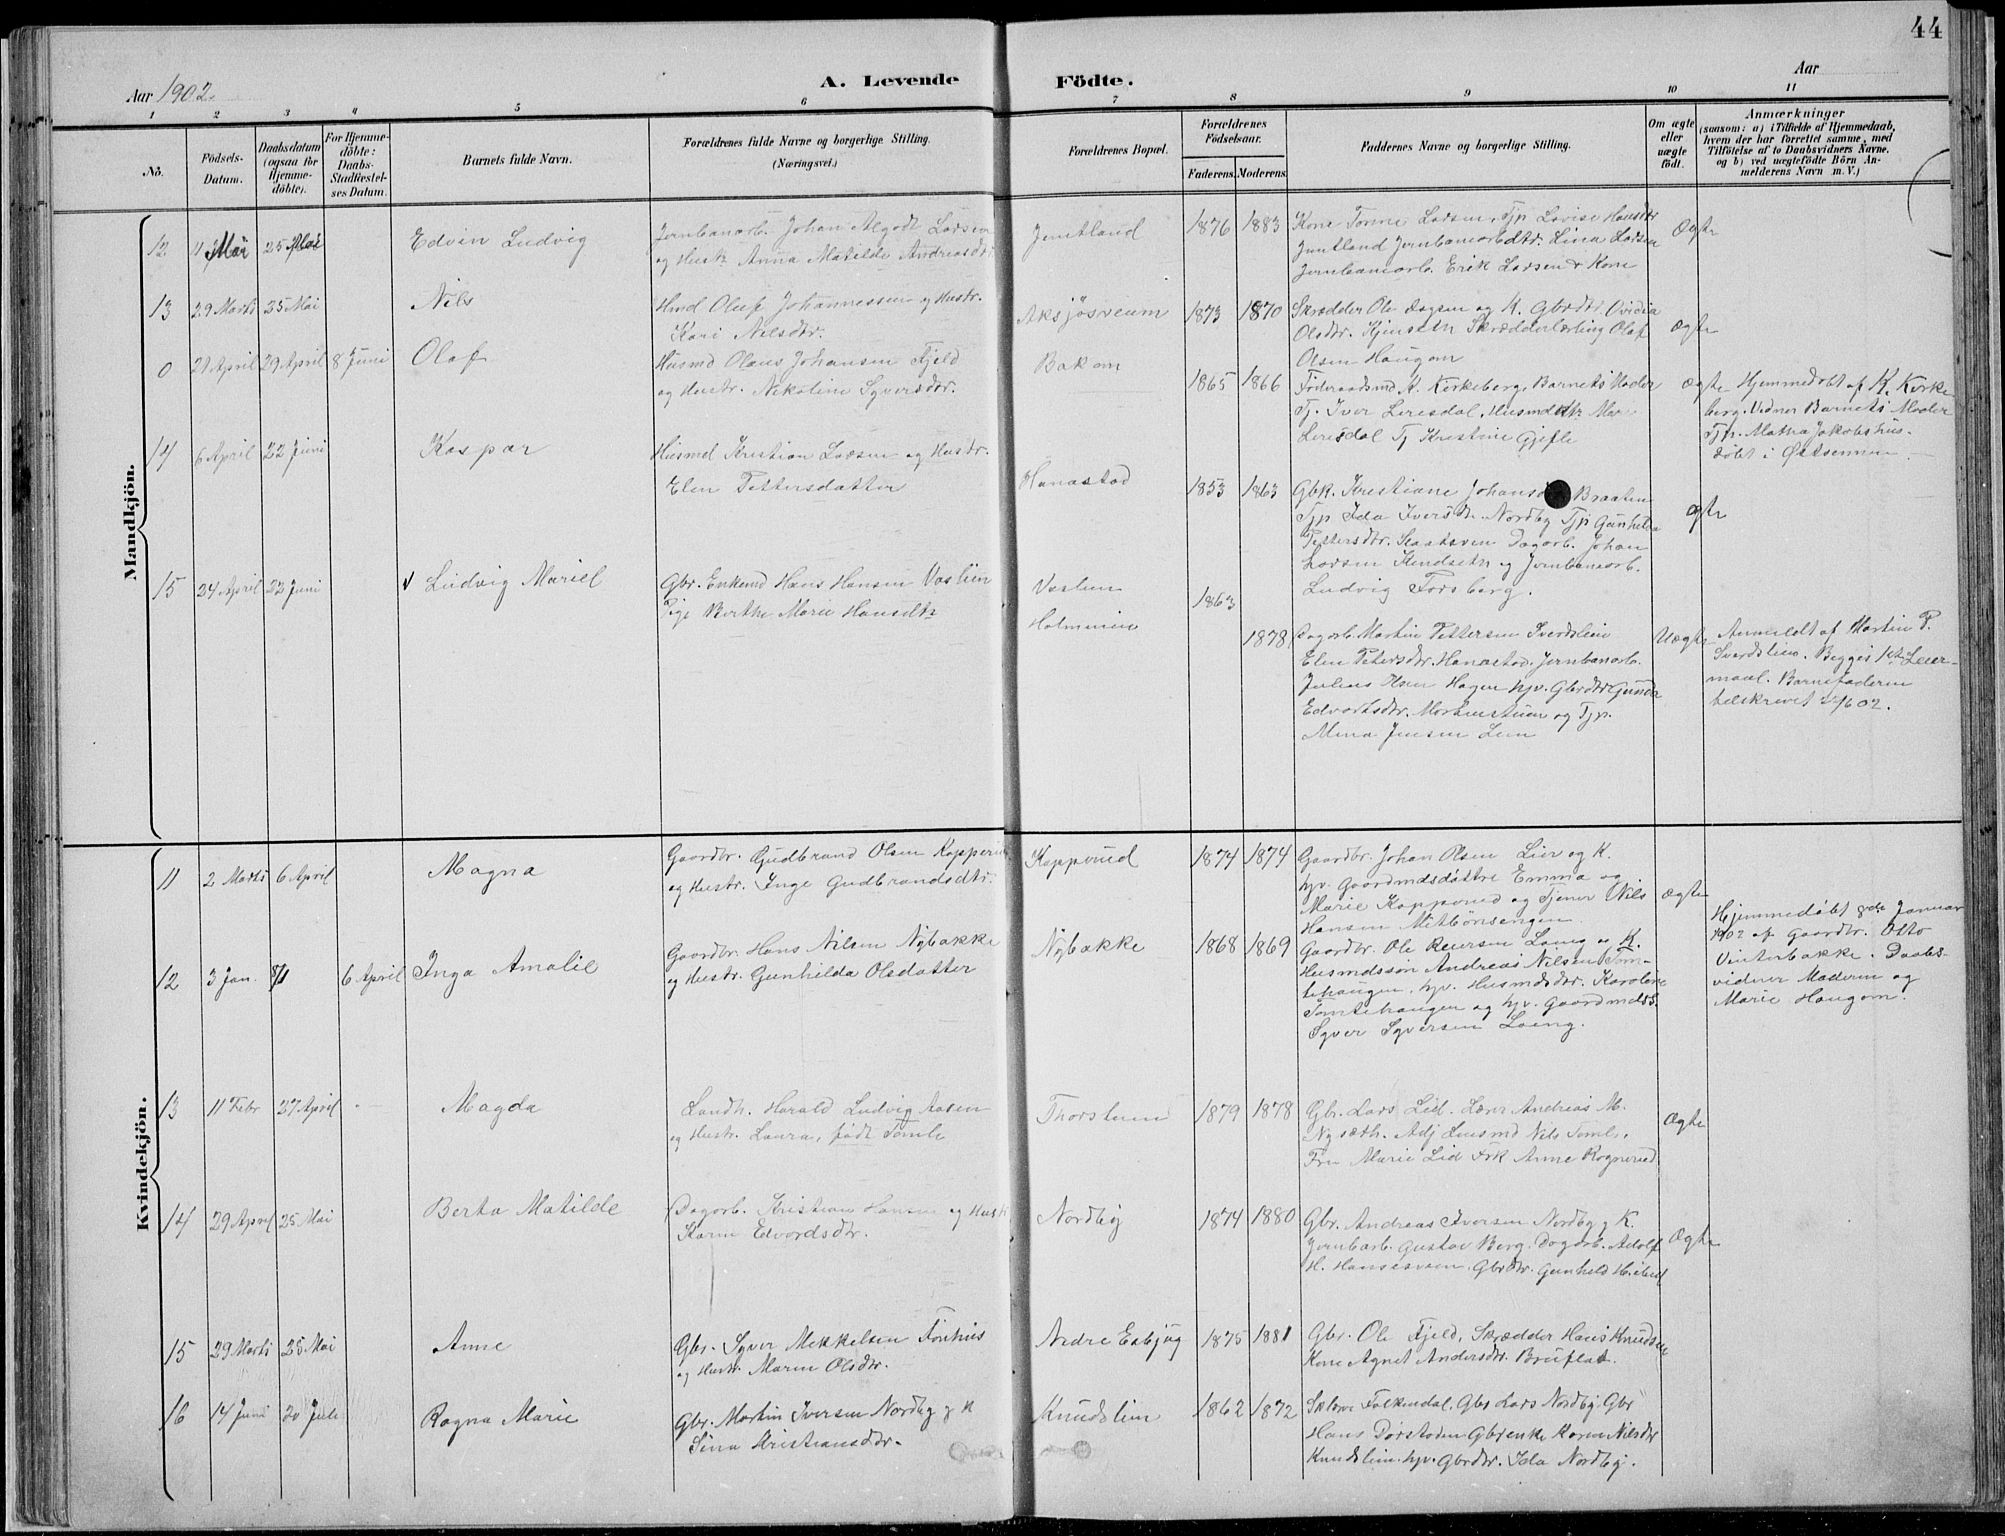 44
Aar 1902.
A. Levende Födte.
Aar
1 2 3 4 5 6 7 8 9 10 11
No.
Födsels-Datum.
Daabsdatum (ogsaa for Hjemmedöbte).
For Hjemmedöbte: Daabs-Stadfæstelses Datum.
Barnets fulde Navn.
Forældrenes fulde Navne og borgerlige Stilling.
(Næringsvei.)
Forældrenes Bopæl.
Forældrenes Födselsaar.
Faderens. Moderens.
Faddernes Navne og borgerlige Stilling.
Om ægte eller uægte födt.
Anmærkninger
(saasom: a) i Tilfælde af Hjemmedaab, hvem der har forrettet samme, med Tilföielse af to Daabsvidners Navne, og b) ved uægtefödte Börn Anmelderens Navn m. V.)
Mandkjön.
12 11 Mai 25 Mai Edvin Ludvig
Jernbanarb. Johan Algodt Larsen
og Hustr. Anna Matilde Andreasdtr.
Jemtland 1876 1883
Kone Tonne Larsen, Tjp Lovise Hansdtr
Jemtland Jernbanearbdtr. Lina Larsen
Jernbanearb. Erik Larsen & Kone
Ægte
13 29 Marts 25 Mai Nils
Hmd Oluf Johannessen og Hustr.
Kari Nilsdtr.
Aksjøsveum 1873 1870
Skrædder Ole Dagsen og K. Gbrdtr. Ovidia
Olsdtr. Kjenseth Skrædderlærling Olaf
Olsen Haugom
Ægte
0 21 April 29 April 8 Juni Olaf
Husmd Olaus Johansen Fjeld
og Hustr. Nikoline Syversdtr.
Bakom 1865 1866
Føderaadsmd A. Kirkeberg, Barnets Moder
Tj. Iver Leresdal, Husmdttr
Leresdal Tj Kristine Gjefle
Ægte
Hjemmedøbt af K. Kirke
berg. Vidner Barnets Moder
Tjp. Mathea Jakobshus-
døbt i
14 6 April 22 Juni Kaspar
Husmd Kristian Larsen og Hustr.
Elen Pettersdatter
Hanastad 1853 1863
Gbk. Kristiane Johans Braaten
Tjp Ida Iversdtr. Nordby Tjp Gunhilda
Pettersdtr. Dagarb. Johan
Larsen og Jernbanearb.
Ludvig Forsberg.
Ægte
15 24 April 22 Juni Ludvig Mariel
Gbr. Enkemd Hans Hansen Vaslien
Pige Berthe Marie Hansdtr
Vaslien
Holmenien
1863 1878
Dagarb. Martin Pettersen Sverdslien
Elen Petersdtr. Hanastad. Jernbanearb.
Julius Olsen Hagen hjv. Gbrdtr Gunda
Edvardsdtr. Mortenstuen og Tjp.
Mina Jensen Lien
Uægte
Anmeldt af Martin P.
Sverdslien. Begges 1ste Leier-
maal. Barnefaderen
tilskrevet
Kvindekjön.
11 2 Marts 6 April Magna
Gaardbr. Gudbrand Olsen Kopperud
og Hustr. Inge Gudbrandsdtr.
Kopperud 1874 1874
Gaardbr. Johan Olsen Lier og K.
hjv. Gaardmdsdøttre Emma og
Marie Kopperud og Tjener Nils
Hansen Mitbönsengen.
Ægte
12 3 Jan. 8/1 6 April Inga Amalie
Gaardbr. Hans Nilsen Nybakke
og Hustr. Gunhilda Olsdatter
Nybakke 1868 1869
Gaardbr. Ole Reiersen Laeng og K.
Husmdssøn Andreas Nilsen Tom-
tehaugen, hjv. Husmdsdtr. Karoline
Tomtehaugen og hjv. Gaardmdss.
Syver Syversen Laeng.
Hjemmedøbt 8de Januar
1902 af Gaardbr. Otto
Vinterbakke. Daabs-
vidner Moderen og
Marie Haugom.
13 11 Febr 27 April Magda
Landh. Harald Ludvig Aasen
og Hustr. Laura, født Tomle
Thorstuen 1879 1878
Gbr. Lars Lid. Lærer Andreas M.
Nysæth. Adj Nils Tomle,
Fru Marie Lid Frk Anne Rognerud.
Ægte
14 29 April 25 Mai Berta Matilde
Dagarb. Kristian Hansen og Hustr
Karen Edvardsdtr.
Nordby 1874 1880
Gbr. Andreas Iversen Nordby og K.
Jernbarb. Gustav Berg. Dagarb. Adolf
H. Hansesveen. Gbrdtr. Gunhild
Ægte
15 29 Marts 25 Mai Anne
Gbr. Syver Mekkelsen Fönhus
og Hustr. Maren Olsdtr.
Nedre Esbjug 1875 1881
Gbr. Ole Fjeld, Skrædder Hans Knudsen
Kone Agnet Andersdtr. Bruflat.
16 14 Juni 20 Juli Ragna Marie
Gbr. Martin Iversen Nordby og K
Sina Kristiansdtr.
Knudslien 1862 1872
Falkendal, Gbr Lars Nordby Gbr
Hans Dorstaden Gbrenke Karen Nilsdtr
Knudslien. hjv. Gbrdtr. Ida Nordby.